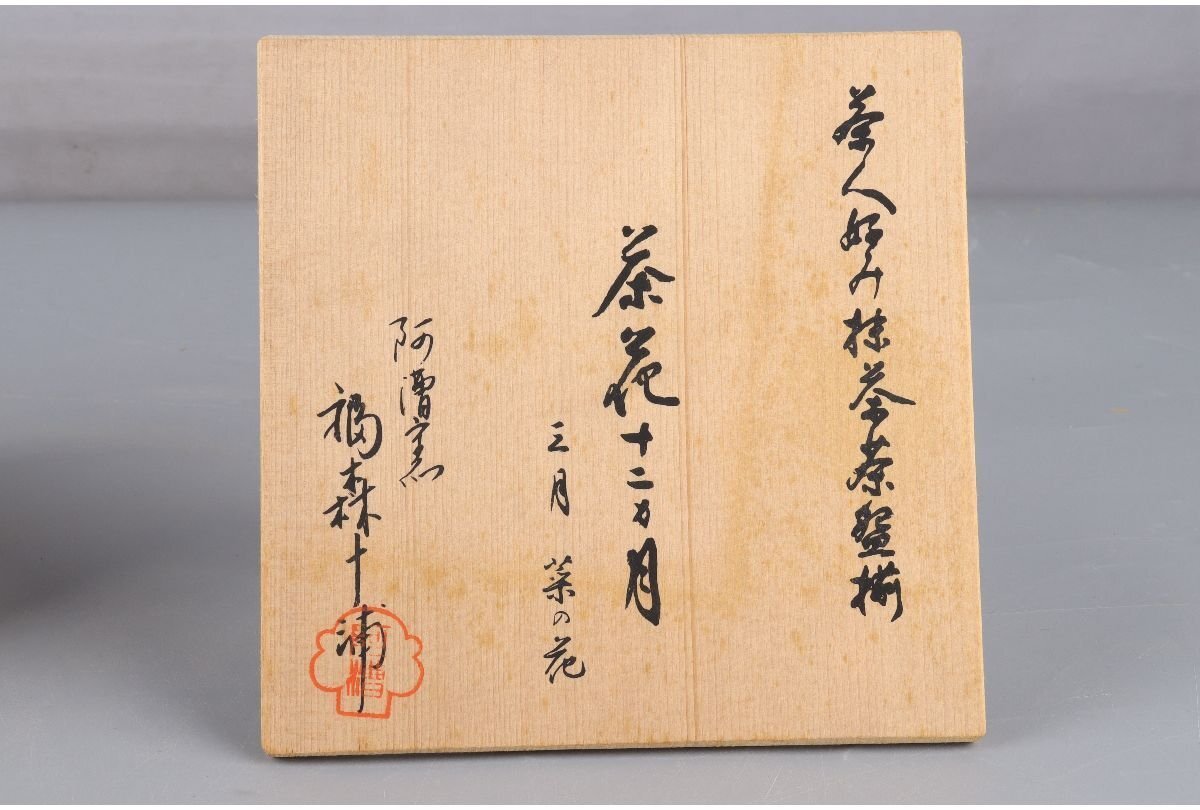 茶人好み抹茶茶盌揃
茶花十二カ月
三月 菜の花
阿漕窯
福森十浦
阿漕